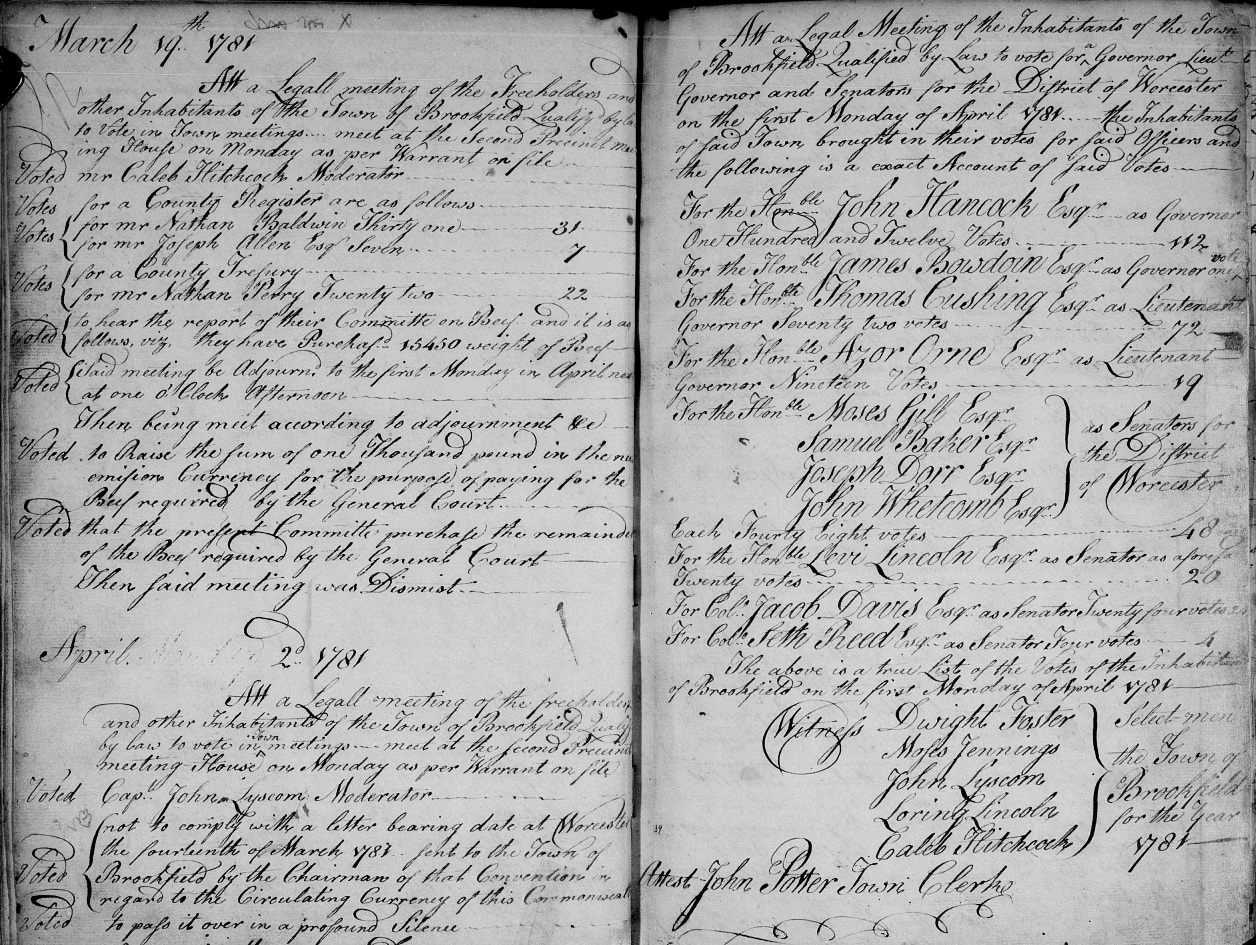 March 19th 1781
Att a Legall meeting of the Freeholders and
other Inhabitants of the Town of Brookfield Qualifyd by La
to Vote in Town meetings meet at the Second Precinct me
ing House on Monday as per Warrant on file
Voted mr Caleb Hitchcock Moderator
Votes for a County Register are as follows
Votes for mr Nathan Baldwin Thirty one 31
for mr Joseph Allen Esqr Seven 7
Votes for a County Tresury
for mr Nathan Perry Twenty two 22
Voted to hear the report of their Committe on Beef and it is as
follows, viz. they have Purchasd 15450 weight of Beef
Voted Said meeting be Adjournd to the first Monday in April ne
at one o'Clock Afternoon
Then being meet according to adjournment &c
Voted to Raise the sum of one Thousand pound in the ne
emision Currency for the purpose of paying for the
Beef required by the General Court
Voted that the present Committe purchase the remainde
of the Beef required by the General Court
Then said meeting was Dismist
April 2d 1781
Att a Legall meeting of the freeholders
and other Inhabitants of the Town of Brookfield Qualify
by Law to vote in Town meetings meet at the second Precinct
meeting House on Monday as per Warrant on file
Voted Capt. John Lyscom Moderator
not to comply with a letter bearing date at Worcester
the fourteenth of March 1781 sent to the Town of
Voted Brookfield by the Chairman of that Convention in
regard to the Circulating Currency of this Commonweal
Voted to pass it over in a profound Silence
Att a Legal Meeting of the Inhabitants of the Town
of Brookfield Qualified by Law to vote for a Governor Lieut
Governor and Senators for the District of Worcester
on the first Monday of April 1781 the Inhabitants
of said Town brought in their votes for said Officers and
the following is a exact Account of said Votes
For the Honble John Hancock Esqr as Governor
One Hundred and Twelve Votes 112
For the Honble James Bowdoin Esqr as Governor one vote
For the Honble Thomas Cushing Esqr as Lieutenant
Governor Seventy two votes 72
For the Honble Azor Orne Esqr as Lieutenant
Governor Nineteen Votes 19
For the Honble Moses Gill Esqr as Senators for
Samuel Baker Esqr the District
Joseph Dorr Esqr of Worcester
John Whetcomb Esqr
Each Fourty Eight votes 48
For the Honble Levi Lincoln Esqr as Senator as aforesd
Twenty votes 20
For Colo Jacob Davis Esqr as Senator Twenty four votes
For Colo Seth Reed Esqr as Senator Four votes 4
The above is a true List of the Votes of the Inhabitants
of Brookfield on the first Monday of April 1781
Witness Dwight Foster Select men
Moses Jennings the Town of
John Lyscom Brookfield
Loring Lincoln for the Year
Caleb Hitchcock 1781
39
Attest John Potter Town Clerk